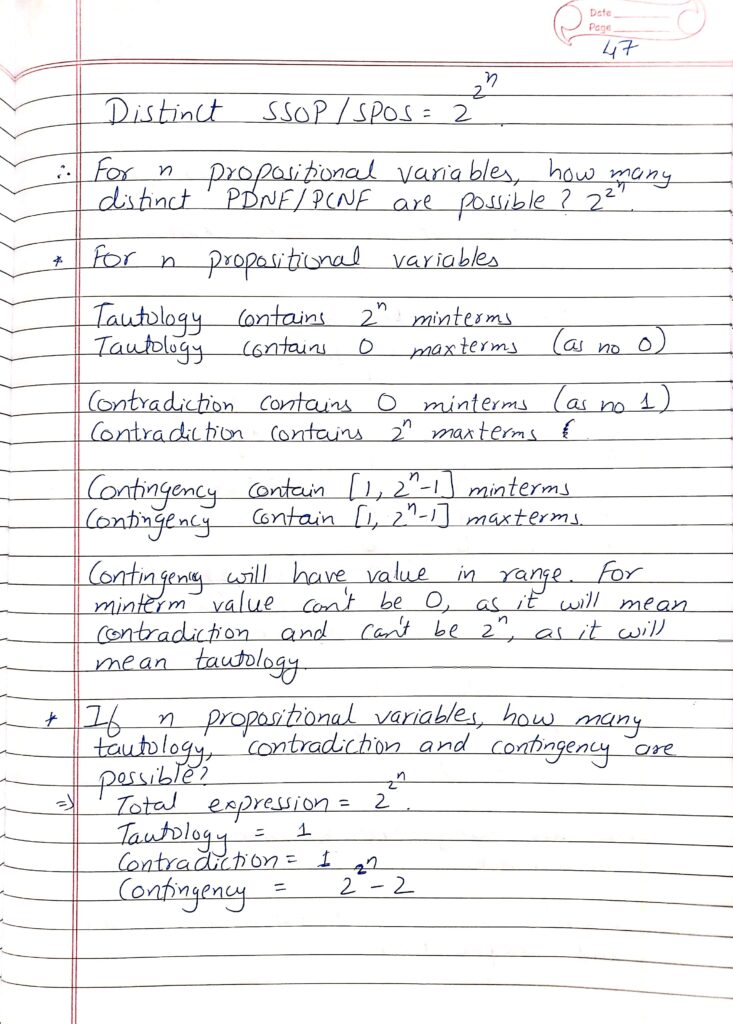 Date
Page
47
Distinct SSOP / SPOS = 2^2^n.
∴ For n propositional variables, how many
distinct PDNF/PCNF are possible? 2^2^n.
* For n propositional variables
Tautology contains 2^n minterms
Tautology contains 0 maxterms (as no 0)
Contradiction contains 0 minterms (as no 1)
Contradiction contains 2^n maxterms
Contingency contain [1, 2^n-1] minterms
Contingency contain [1, 2^n-1] maxterms.
Contingency will have value in range. For
minterm value can't be 0, as it will mean
contradiction and can't be 2^n, as it will
mean tautology.
* If n propositional variables, how many
tautology, contradiction and contingency are
possible?
=> Total expression = 2^2^n.
Tautology = 1
Contradiction = 1
Contingency = 2^2^n - 2